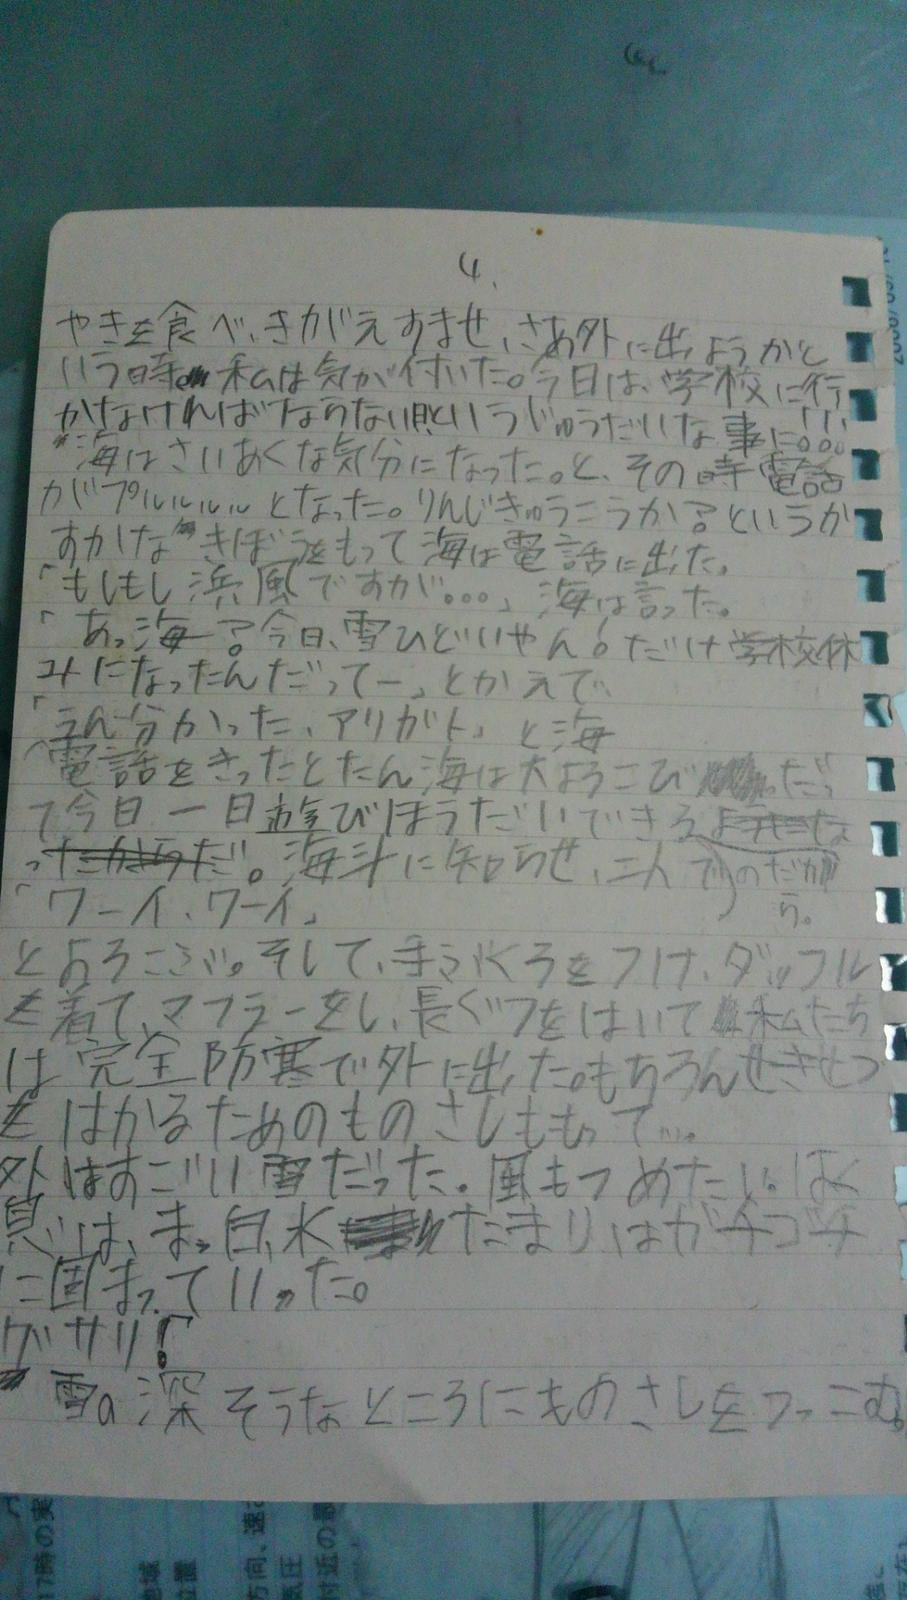 4.
やきを食べ、きがえすませ、さあ外に出ようかと
いう時 私は気が付いた。今日は、学校に行
かなければならないというじゅうだいな事に!!!
海はさいあくな気分になった。と、その時電話
がプルルルルとなった。りんじきゅうこうか?というか
すかな きぼうをもって海は電話に出た。
「もしもし浜風ですが…」海は言った。
「あっ海ー?今日、雪ひどいやん!だけ学校休
みになったんだってー」とかえで、
「うん分かった、アリガト」と海
電話をきったとたん海は大よろこび だっ
て今日一日遊びほうだいできる
のだから。海斗に知らせ、二人で
「ワーイ、ワーイ」
とよろこぶ。そして、手ぶくろをつけ、ダッフル
を着て、マフラーをし、長ぐつをはいて 私たち
は完全防寒で外に出た。もちろんせきせつ
をはかるためのものさしももって…
外はすごい雪だった。風もつめたい。はく
息は、まっ白、水たまりはガチゴチ
に固まっていった。
グサリ!
雪の深そうなところにものさしをつっこむ。
17時の実
地域
位置
方向、速さ
気圧
付近の最